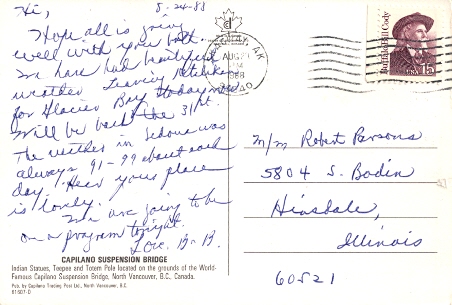 Hi, 8-24-88
Hope all is going
well with you both.
We have had beautiful
weather. Leaving
for Glacier Bay today
Will be back the 31st.
The weather in Sedona was
always 91-99 about each
day. Hear your place
is lovely.
We are going to be
on a program tonight.
Love. B-B.
CAPILANO SUSPENSION BRIDGE
Indian Statues, Teepee and Totem Pole located on the grounds of the World-
Famous Capilano Suspension Bridge, North Vancouver, B.C. Canada.
Pub. by Capilano Trading Post Ltd., North Vancouver, B.C.
AK
AUG
1988
Buffalo Bill Cody
USA 15
M/M Robert Parsons
5804 S. Bodin
Hinsdale,
Illinois
60521